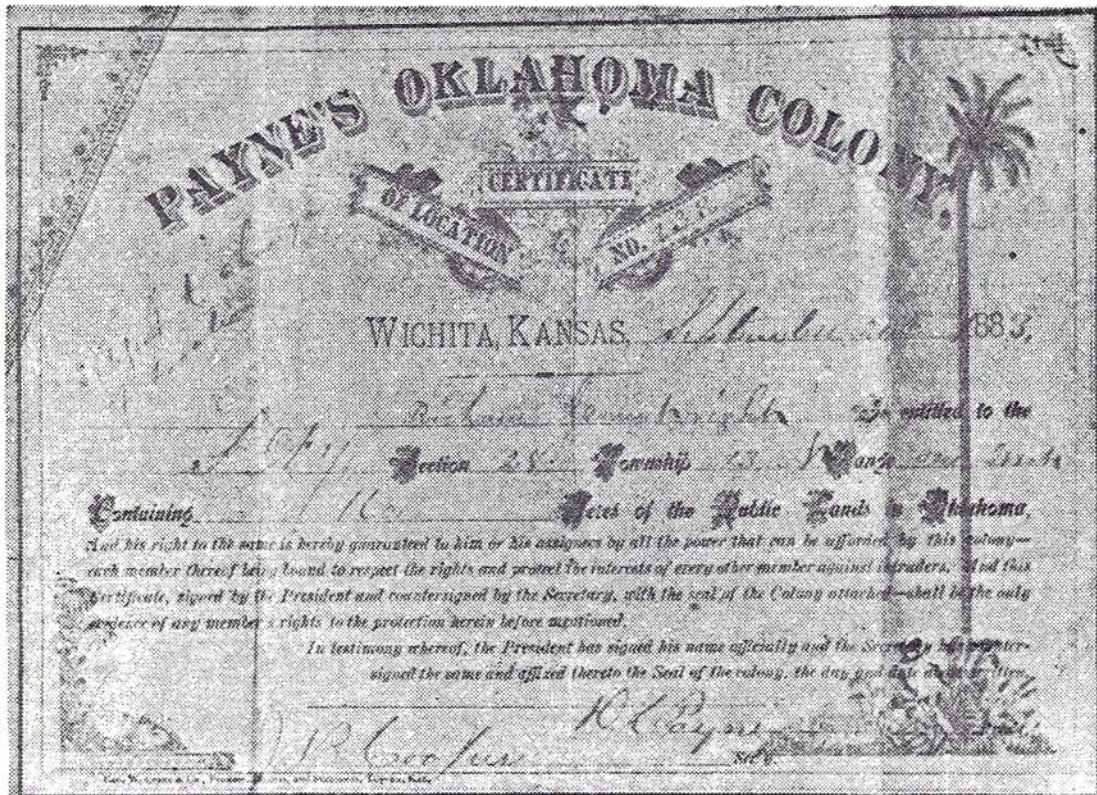 PAYNE'S OKLAHOMA COLONY.
CERTIFICATE
OF LOCATION NO.
WICHITA, KANSAS, 1883.
Is entitled to the
Section 28 Township 13 Range
Containing 160 Acres of the Public Lands in Oklahoma,
And his right to the same is hereby guaranteed to him or his assignees by all the power that can be afforded by this colony—
each member thereof being bound to respect the rights and protect the interests of every other member against intruders. And this
Certificate, signed by the President and countersigned by the Secretary, with the seal of the Colony attached—shall be the only
evidence of any member's rights to the protection herein before mentioned.
In testimony whereof, the President has signed his name officially and the Secretary has counter-
signed the same and affixed thereto the Seal of the colony, the day and date above written.
Payne
Cooper Sec'y.